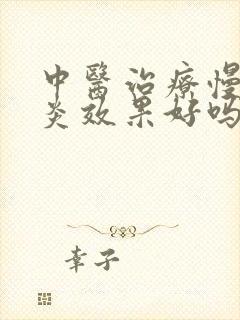 中醫治療慢
炎效果好嗎
幸子